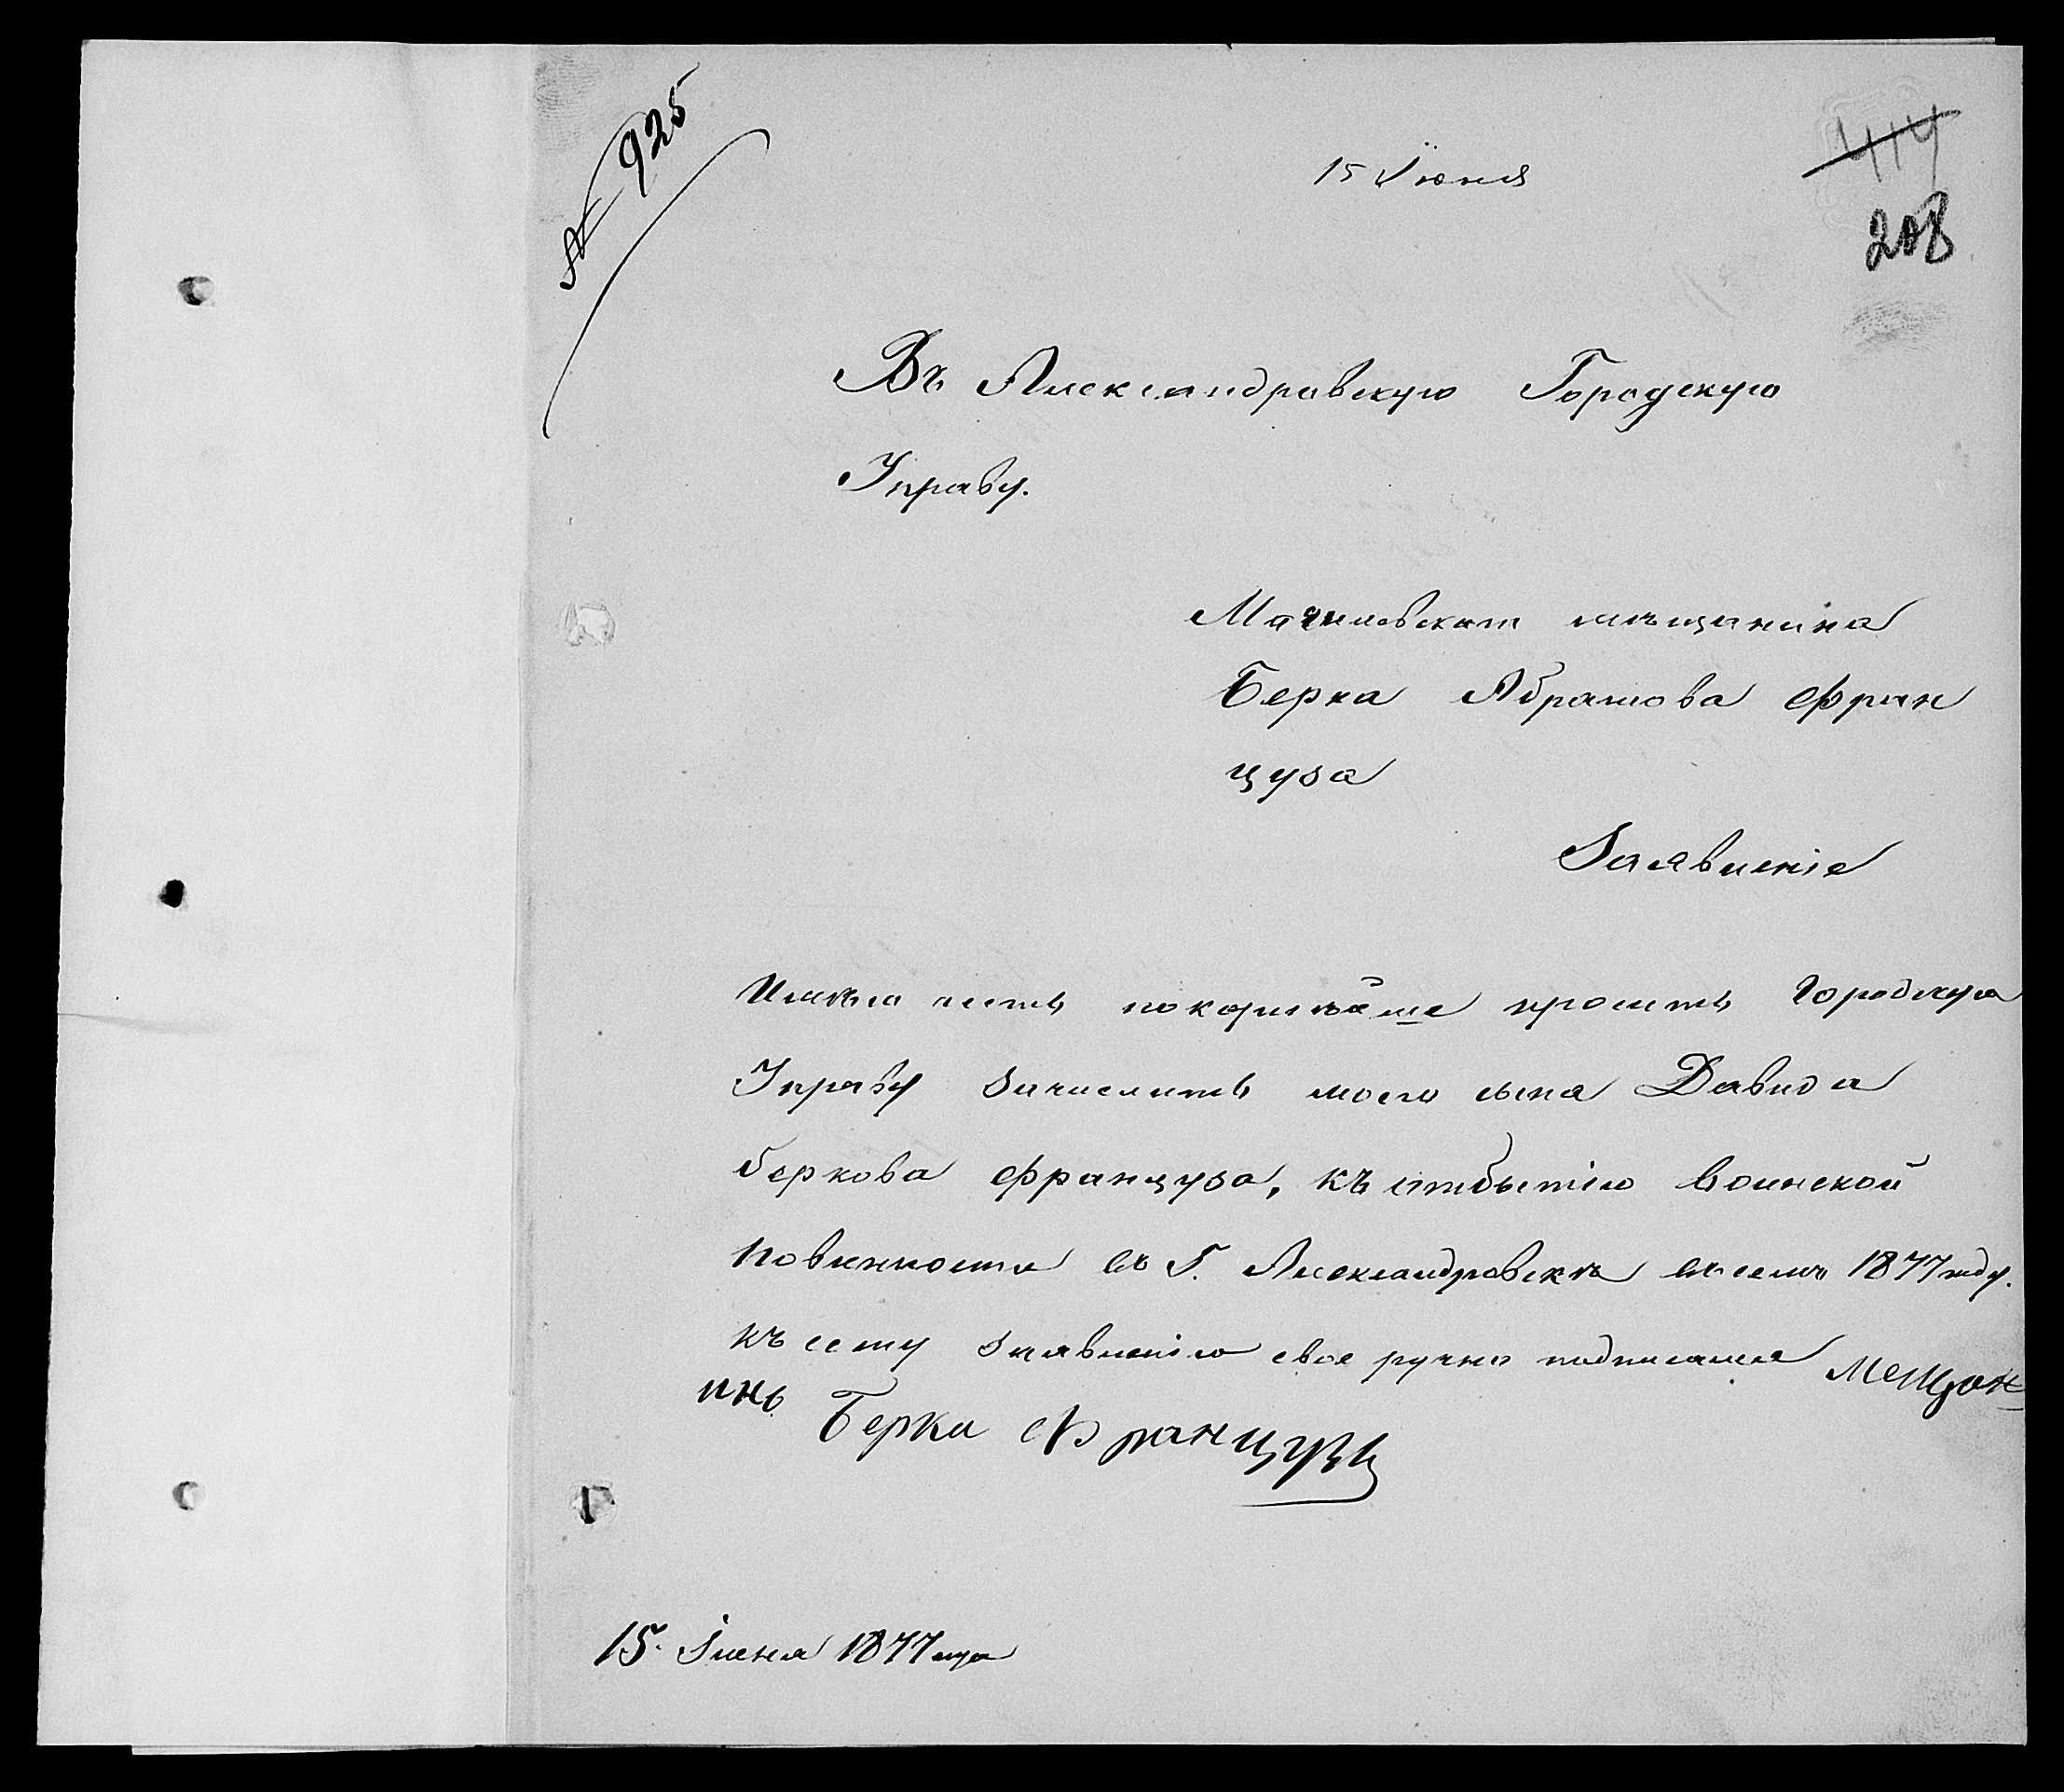 № 925
15 Іюня
414
208
Въ Александровскую Городскую
Управу.
Могилевскаго мѣщанина
Берка Абрамова Фран
цуза
Заявленіе
Имѣю честь покорнѣйше просить Городскую
Управу зачислить моего сына Давида
Беркова Француза, къ отбытію воинской
повинности въ Г. Александровскѣ въ семъ 1877 году.
къ сему заявленію свое ручно подписался мещан
инъ Берка Французъ
15. Іюня 1877 года